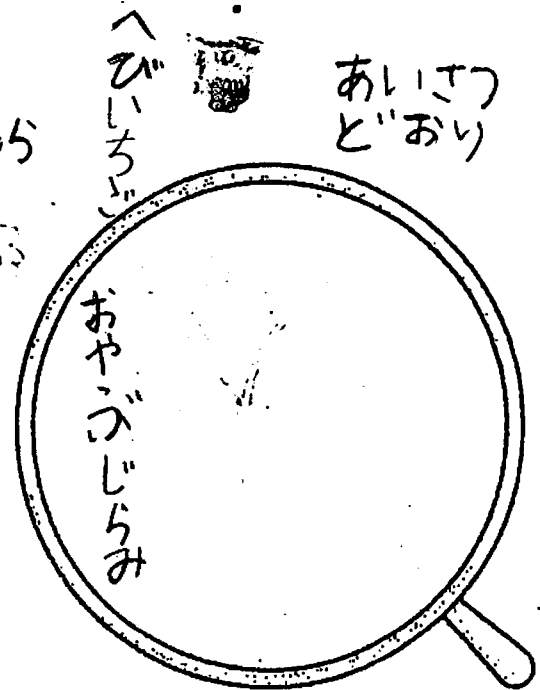 へびいちご
あいさつ
どおり
おやぶじらみ
ら